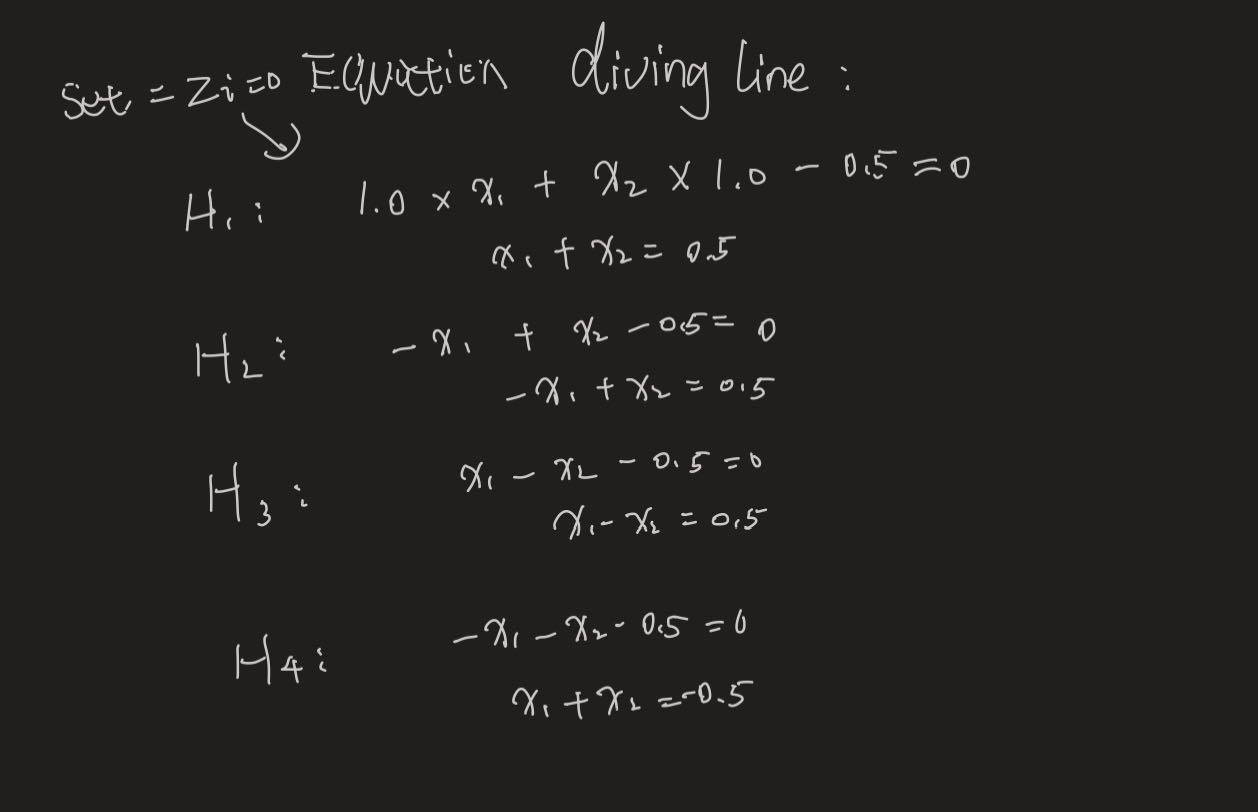 Set = Zi=0 Equation diving line :
H₁ : 1.0 × x₁ + x₂ × 1.0 - 0.5 = 0
x₁ + x₂ = 0.5
H₂ : - x₁ + x₂ - 0.5 = 0
- x₁ + x₂ = 0.5
H₃ : x₁ - x₂ - 0.5 = 0
x₁ - x₂ = 0.5
H₄ : - x₁ - x₂ - 0.5 = 0
x₁ + x₂ = -0.5